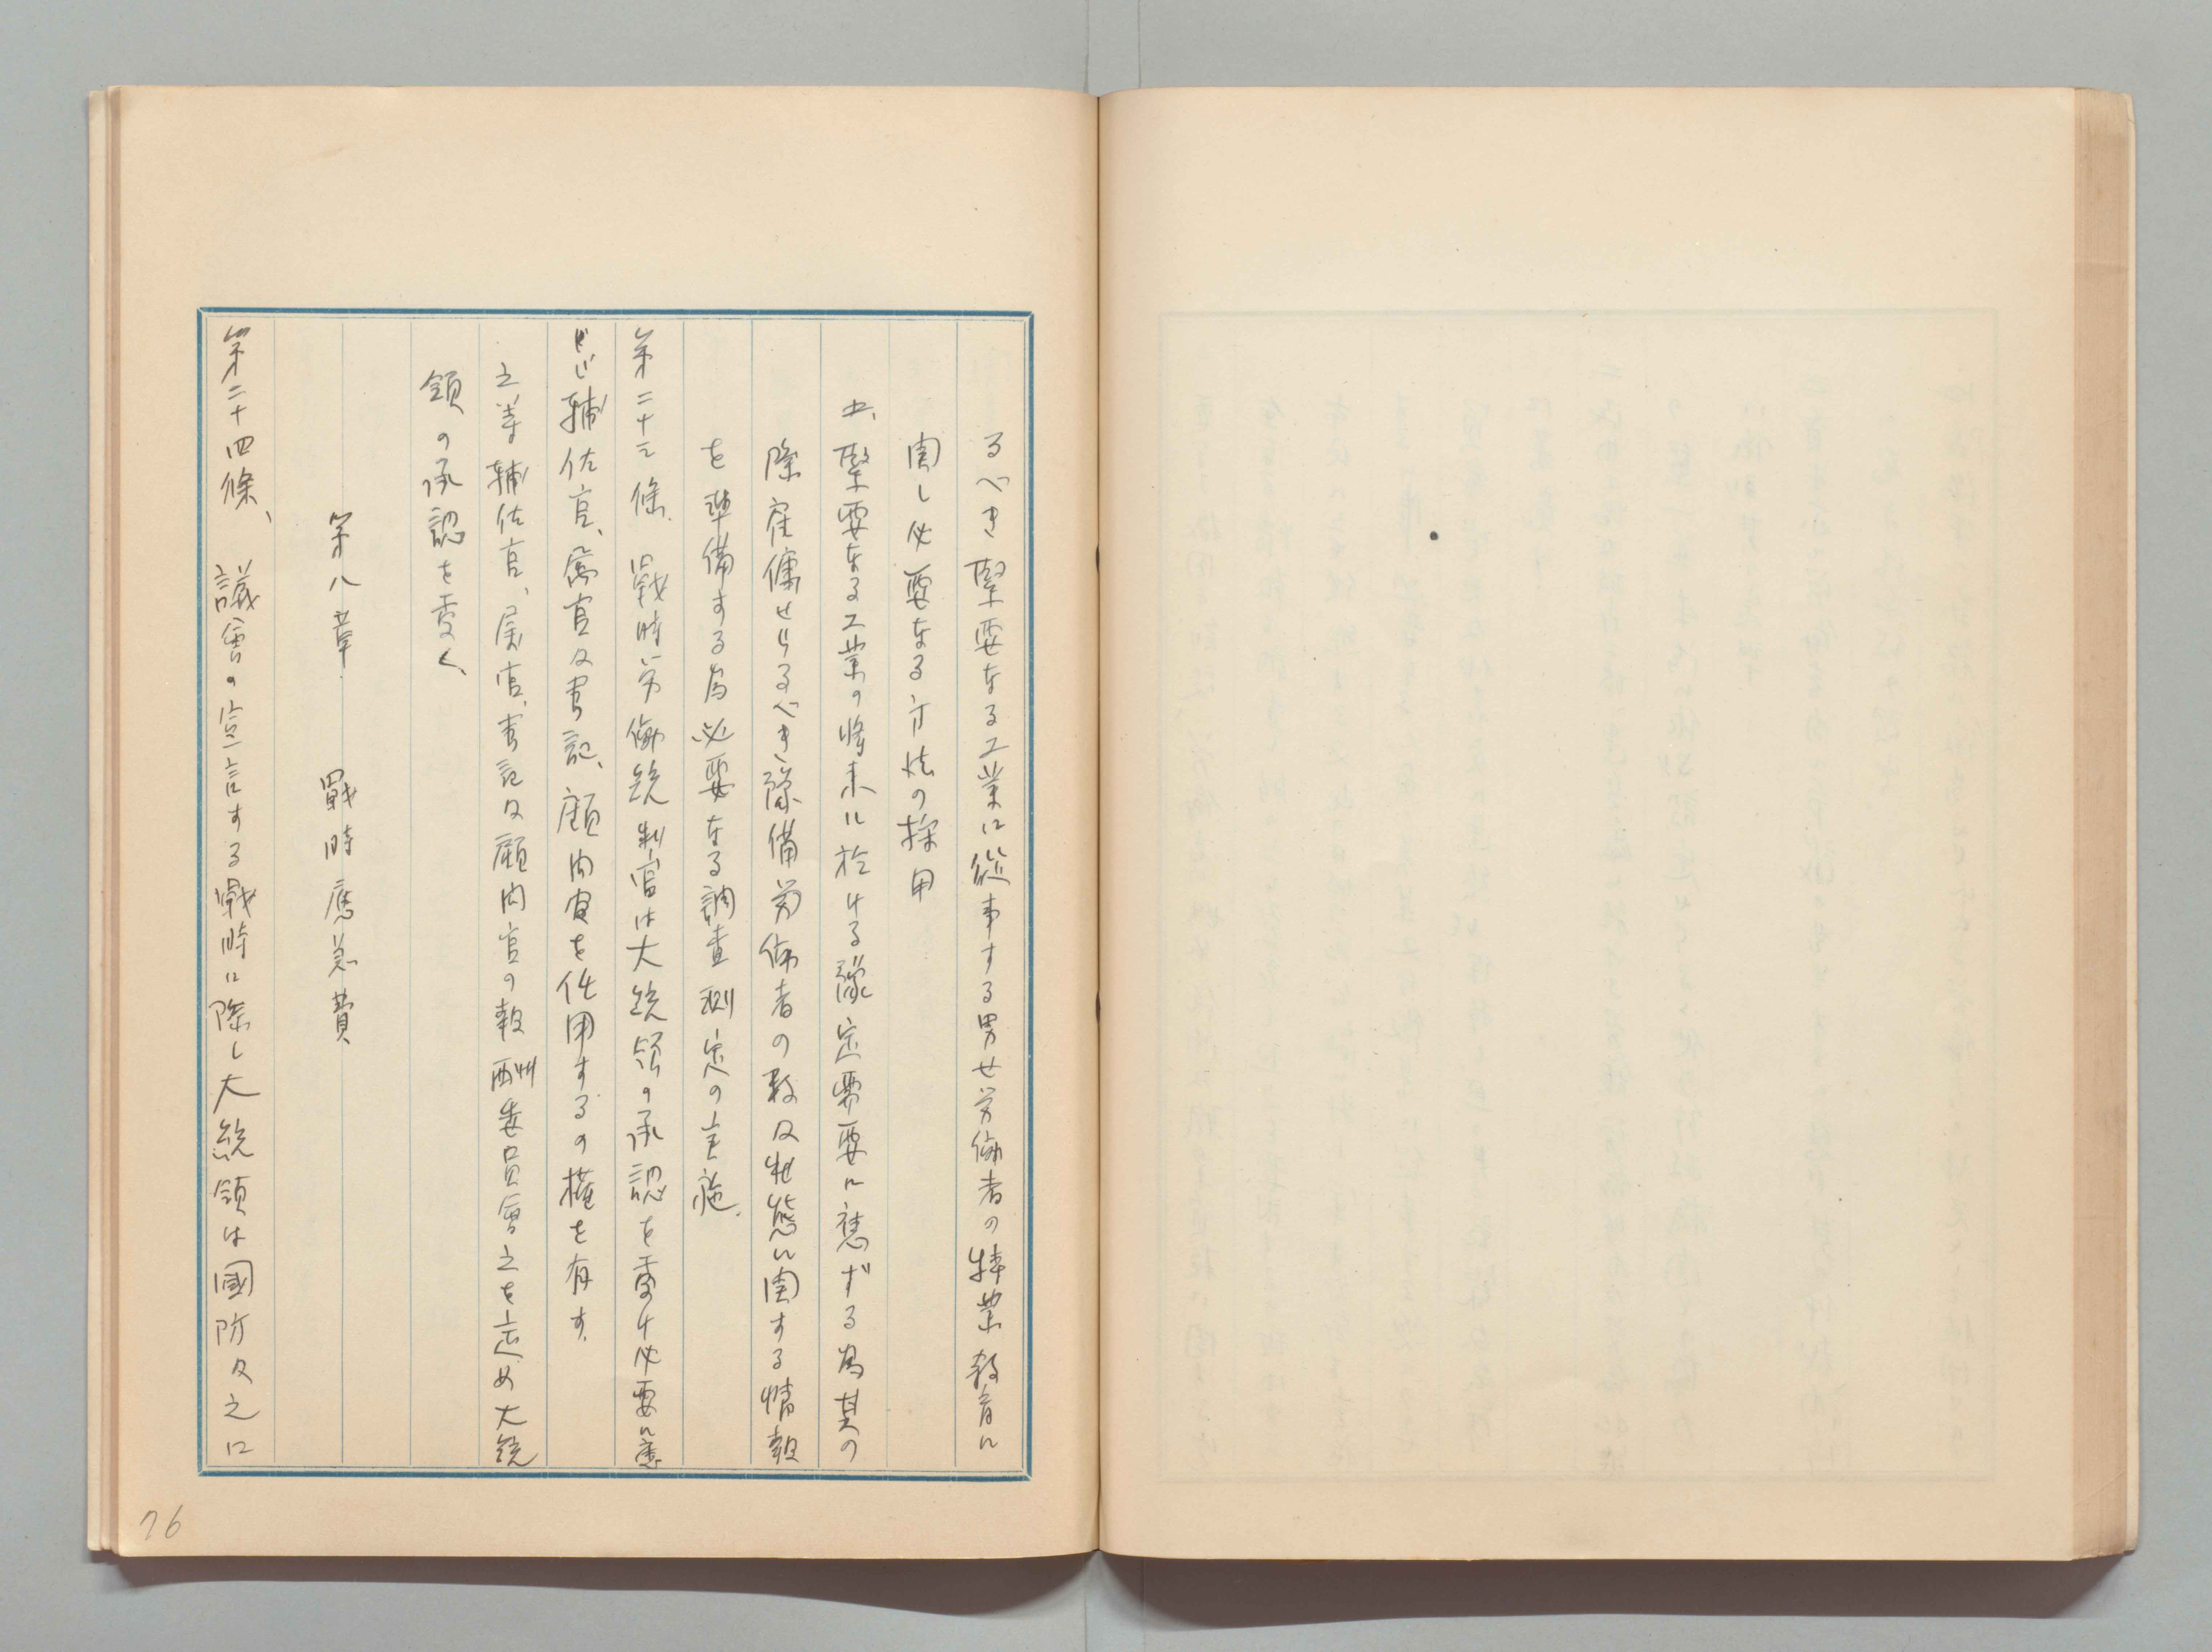 るべき緊要なる工業に従事する男女労働者の特業教育に
関し必要なる方法の採用
五、緊要なる工業の将来に於ける豫定需要に應ずる為其の
際雇傭せらるべき豫備労働者の数及状態に関する情報
を準備する為必要なる調査測定の実施.
第二十三條. 戰時労働統制官は大統領の承認を受け必要に應
じ輔佐官、属官及書記、顧問官を任用するの権を有す.
之等輔佐官、属官、書記及顧問官の報酬委員會之を定め大統
領の承認を受く、
第八章 戰時應急費
第二十四條、議會の宣言する戰時に際し大統領は國防及之に
76